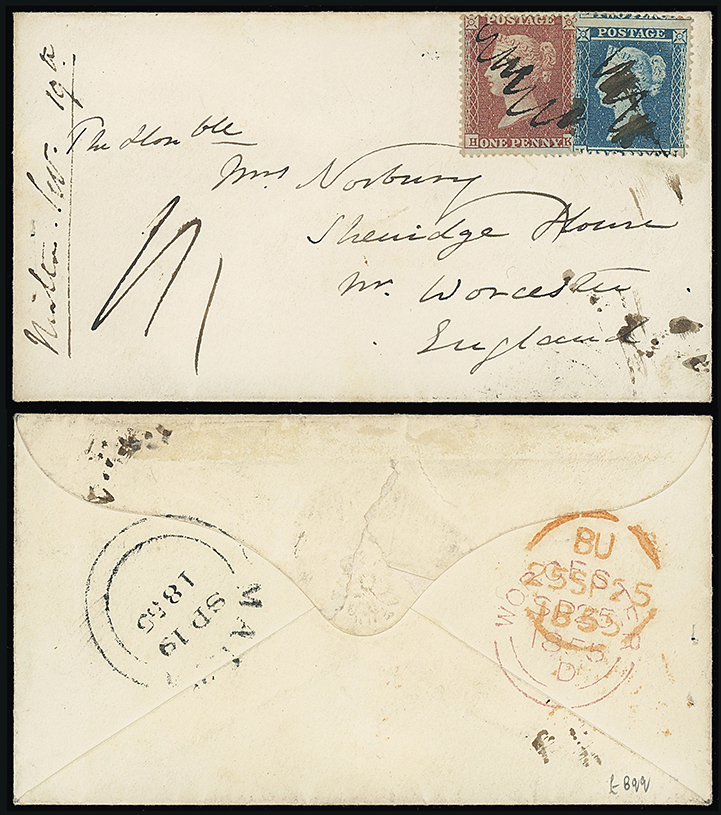 POSTAGE
H ONE PENNY K
POSTAGE
The Honble
Mrs Norbury
Sherridge House
Nr. Worcester
England
19th
MA
SP 19
1855
BU
25SP25
1855
WORCESTER
SP 25
1855
D
£899